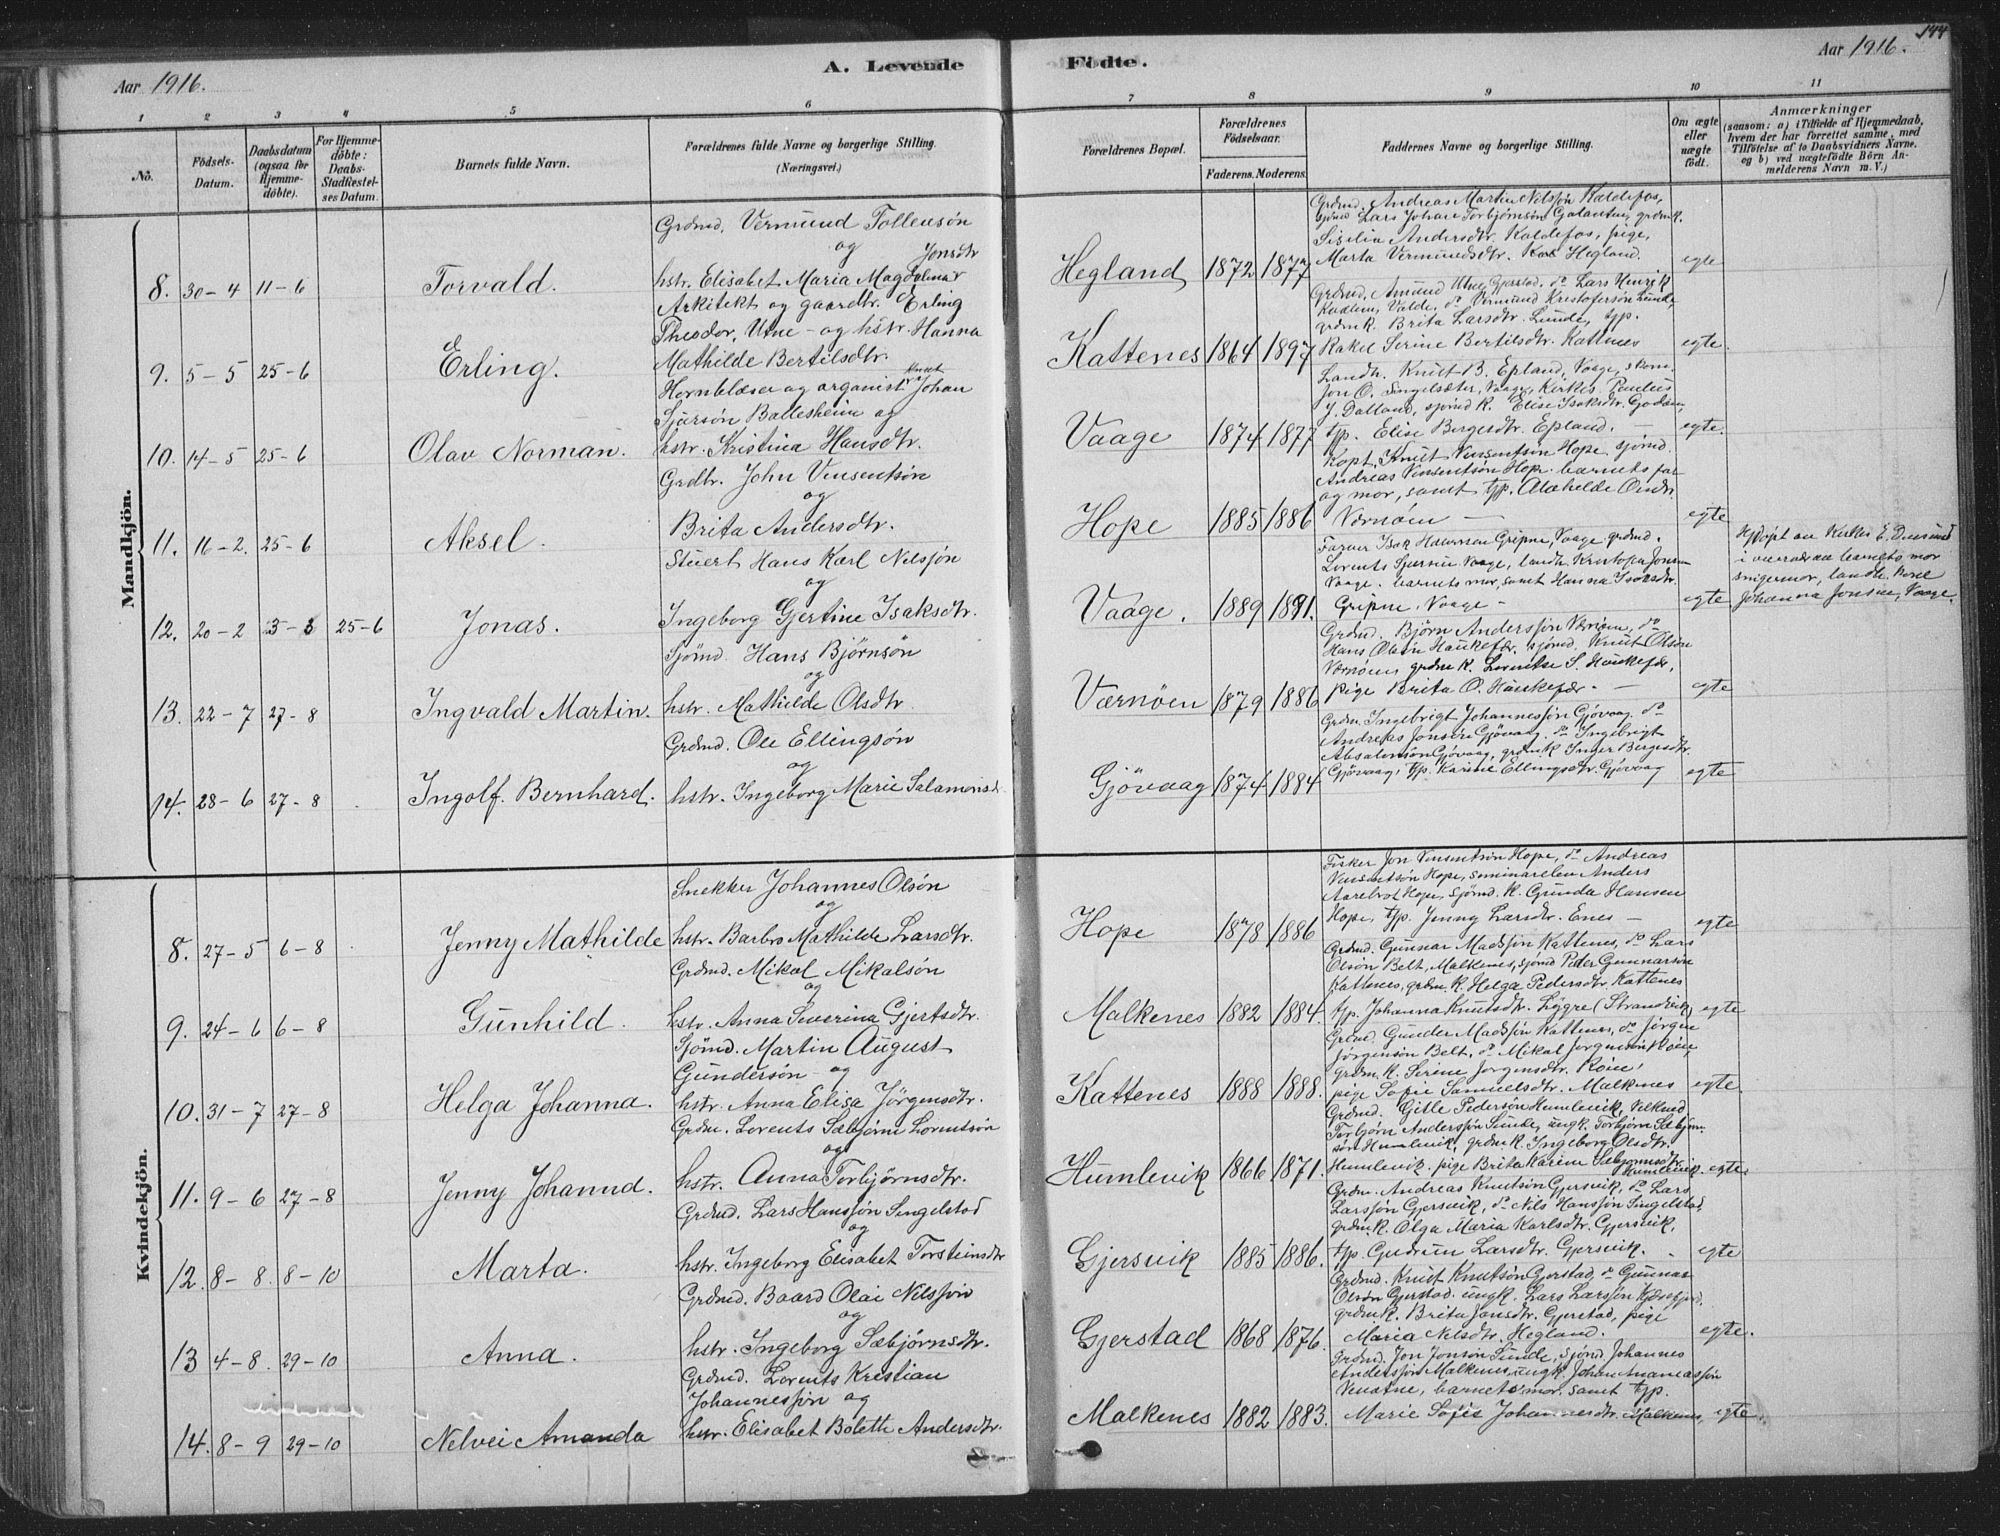 144
Aar 1916.
A. Levende Födte.
Aar 1916.
1 2 3 4 5 6 7 8 9 10 11
No.
Födsels-Datum.
Daabsdatum (ogsaa for Hjemme-döbte).
For Hjemme-döbte: Daabs-Stadfæstel-ses Datum.
Barnets fulde Navn.
Forældrenes fulde Navne og borgerlige Stilling.
(Næringsvei.)
Forældrenes Bopæl.
Forældrenes Födselsaar.
Faderens. Moderens.
Faddernes Navne og borgerlige Stilling.
Om ægte eller uægte födt.
Anmærkninger
(saasom: a) i Tilfælde af Hjemmedaab, hvem der har forrettet samme, med Tilföielse af to Daabsvidners Navne, og b) ved uægtefödte Börn Anmelderens Navn m. V.)
Mandkjön.
8. 30-4 11-6 Torvald.
Grdmd. Vermund Tollensön
og Jonsdtr
hstr. Elisabet Maria Magdalena
Hegland 1872 1877
Grdmd. Andreas Martin Nilssön Kaldefos,
Grdmd Lars Johan Torbjörnsön grdmk.
Sisilia Andersdtr. Kaldefos, pige,
Marta Vermundsdtr. Hegland.
egte
9. 5-5 25-6 Erling.
Arkitekt og gaardbr. Erling
Theodor Utne - og hstr. Hanna
Mathilde Bertilsdtr.
Kattenes 1864 1897
Grdmd. Amund Utne Gjerstad, do Lars Henrik
Valde, do Vermund Kristofersön Lunde,
grdmk. Brita Larsdtr. Lunde, typ.
Rakel Serine Bertilsdtr. Kattenes
egte.
10. 14-5 25-6 Olav Norman.
Hornblæser og organist Knut Johan
Sjursön Ballesheim og
hstr. Kristina Hansdtr.
Vaage 1874 1877
Landh. Knut B. Epland, Vaage, skom.
Jon O. Singelsæter, Vaage, Kirkes. Paulus
J. Dalland, sjömd k. Elise Isaksdtr. Godön,
typ. Elise Bergesdtr. Epland. -
egte.
11. 16-2. 25-6 Aksel.
Grdbr. John Vinsentsön
og
Brita Andersdtr.
Hope 1885 1886
Kapt. Knut Vinsentsön Hope, sjömd.
Andreas Vinsentsön Hope, barnets far
og mor, samt typ. Alahilde Olsdtr
Værnöen -
egte
12. 20-2 25-6 Jonas.
Stuert Hans Karl Nilssön
og
Ingeborg Gjertine Isaksdtr.
Vaage. 1889 1891.
Farver Isak Gripne, Vaage, grdmd.
Lorents Vaage, landh. Kristofer Jonsen
Vaage. barnets mor, samt Hanna Isaksdtr.
Gripne, Vaage -
egte
Hjdöpt av Kirkes. E.
i overvær av barnets mor
svigermor, landh. kone
Johanna Jonsen, Vaage.
13. 22-7 27-8 Ingvald Martin.
Sjömd. Hans Björnsön
og
hstr. Mathilde Olsdtr.
Værnöen 1879 1886
Grdmd. Björn Anderssön Værnöen, do
Hans Olsen Haukefær. sjömd. Knut Olsön
Værnöen, grdm k. Lorentse S. Haukefær,
pige Brita O. Haukefær. -
egte
14. 28-6 27-8 Ingolf Bernhard.
Grdmd. Ole Ellingsön
og
hstr. Ingeborg Marie Salamonsd.
Gjövaag 1874 1884
Grdm. Ingebrigt Johannessön Gjövaag. do
Andreas Jonsön Gjövaag. do Ingebrigt
Absalonsön Gjövaag, grdmk Inger Bergesdtr.
Gjövaag, typ. Karine Ellingsdtr. Gjövaag
egte
Kvindekjön.
8. 27-5 6-8 Jenny Mathilde
Snekker Johannes Olsön
og
hstr. Barbro Mathilde Larsdtr.
Hope 1878 1886
Fisker Jon Vinsentsön Hope, do Andreas
Vinsentsön Hope, seminarelev Anders
Aarebrot Hope, sjömd. k. Gunda Hansen
Hope, typ. Jenny Larsdtr. Enes -
egte
9. 24-6 6-8 Gunhild.
Grdmd. Mikal Mikalsön
og
hstr. Anna Severina Gjertsdtr.
Malkenes 1882 1884.
Grdmd. Gunnar Madssön Kattenes, do Lars
Olsön Belt, Malkenes, sjömd Peder Gunnarsön
Kattenes, grdm. k. Helga Pedersdtr. Kattenes
typ. Johanna Knutsdtr. Lygre (Strandvik)
egte
10. 31-7 27-8 Helga Johanna.
Sjömd. Martin August
Gundersön - og
hstr. Anna Elisa Jörgensdtr.
Kattenes 1888 1888.
Grdmd. Gunder Madssön Kattenes, do Jörgen
Jörgensön Belt, do Mikal Jörgensön Röen,
grdm. k. Serine Jorgensdtr. Röen,
pige Sofie Samuelsdtr. Malkenes
egte.
11. 9-6 27-8 Jenny Johanna.
Grdm. Lorents Sæbjörn Lorentsön
og
hstr. Anna Torbjörnsdtr.
Humlevik 1866 1871.
Grdmd. Gitle Pedersön Humlevik,
Torbjörn Anderssön Sunde, ungk. Torbjörn Sæbjörn-
sön Humlevik, grdmk. Ingeborg Olsdtr.
Humlevik, pige Brita Karine Sebjörnsdtr.
Humlevik
egte.
12. 8-8. 8-10 Marta.
Grdmd. Lars Hanssön Singelstad
og
hstr. Ingeborg Elisabet Torsteinsdtr
Gjersvik 1885 1886.
Grdm. Andreas Knutsön Gjersvik, do Lars
Larssön Gjersvik, do Nils Hanssön Singelstad,
grdmk. Olga Maria Karlsdtr. Gjersvik,
typ. Gudrun Larsdtr. Gjersvik. -
egte
13 4-8. 29-10 Anna.
Grdmd. Baard Olai Nilssön
og
hstr. Ingeborg Sæbjörnsdtr.
Gjerstad 1868 1876.
Grdmd. Knut Knutsön Gjerstad, do Gunnar
Olsön Gjerstad. ungk. Lars Larssön
grdmk. Brita Jonsdtr. Gjerstad, pige
Maria Nilsdtr. Hegland.
egte.
14. 8-9 29-10 Nelvei Amanda
Grdmd. Lorents Kristian
Johannessön og
hstr. Elisabet Bolette Andersdtr.
Malkenes 1882 1883.
Grdmd. Jon Jonsön Sunde, sjömd. Johannes
Anderssön Malkenes, ungk. Johan Ananiassön
Venæme, barnets mor, samt typ.
Marie Sofie Johannesdtr. Malkenes,
egte.